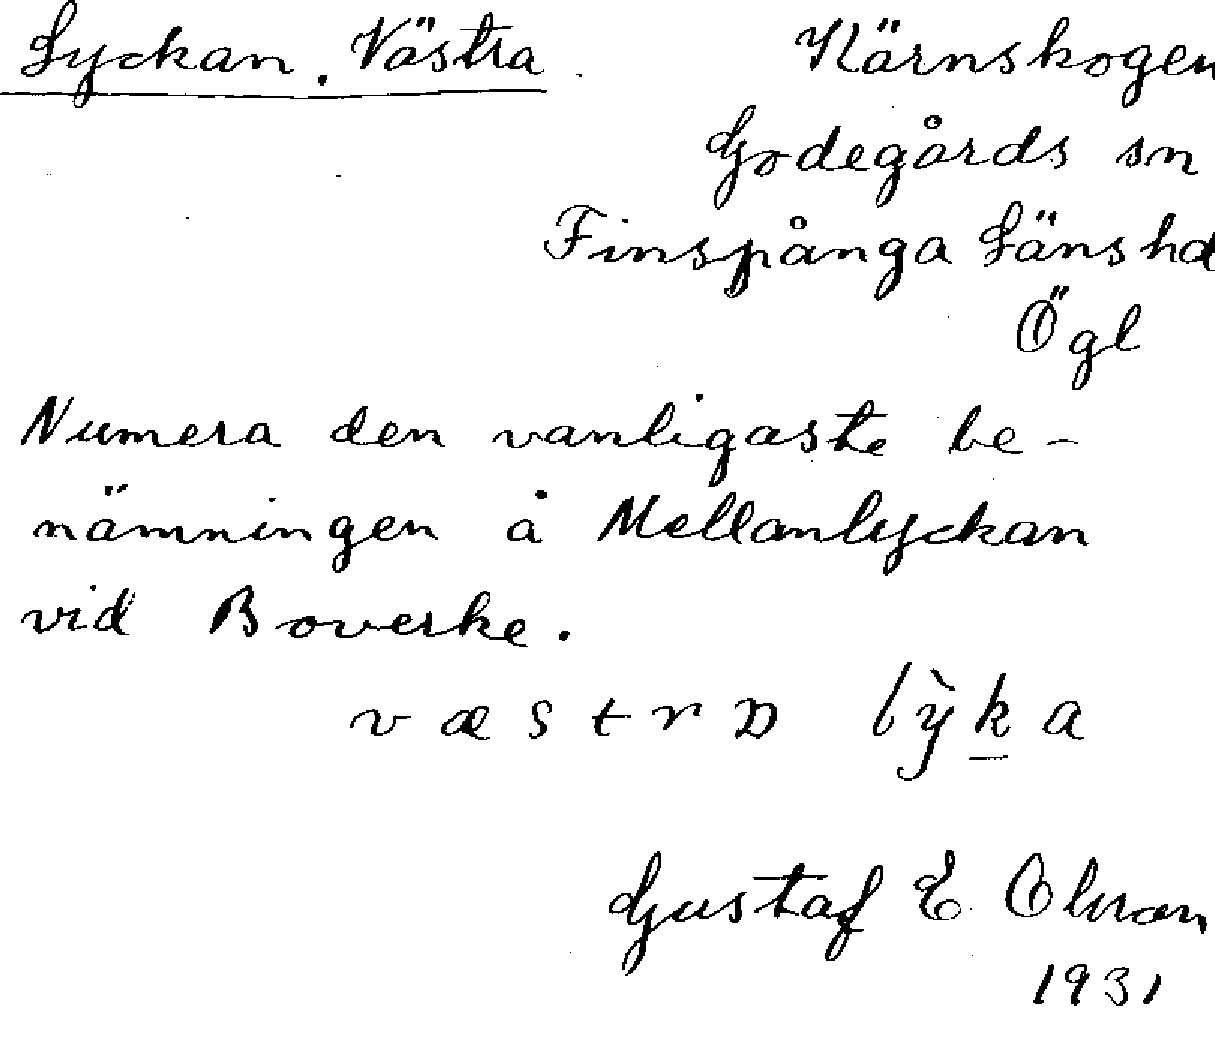 Lyckan. Västra
Kärnskogen
Godegårds sn
Finspånga Länshd
Ögl
Numera den vanligaste be-
nämningen å Mellanlyckan
vid Boverke.
væstra lỳka
Gustaf E
1931